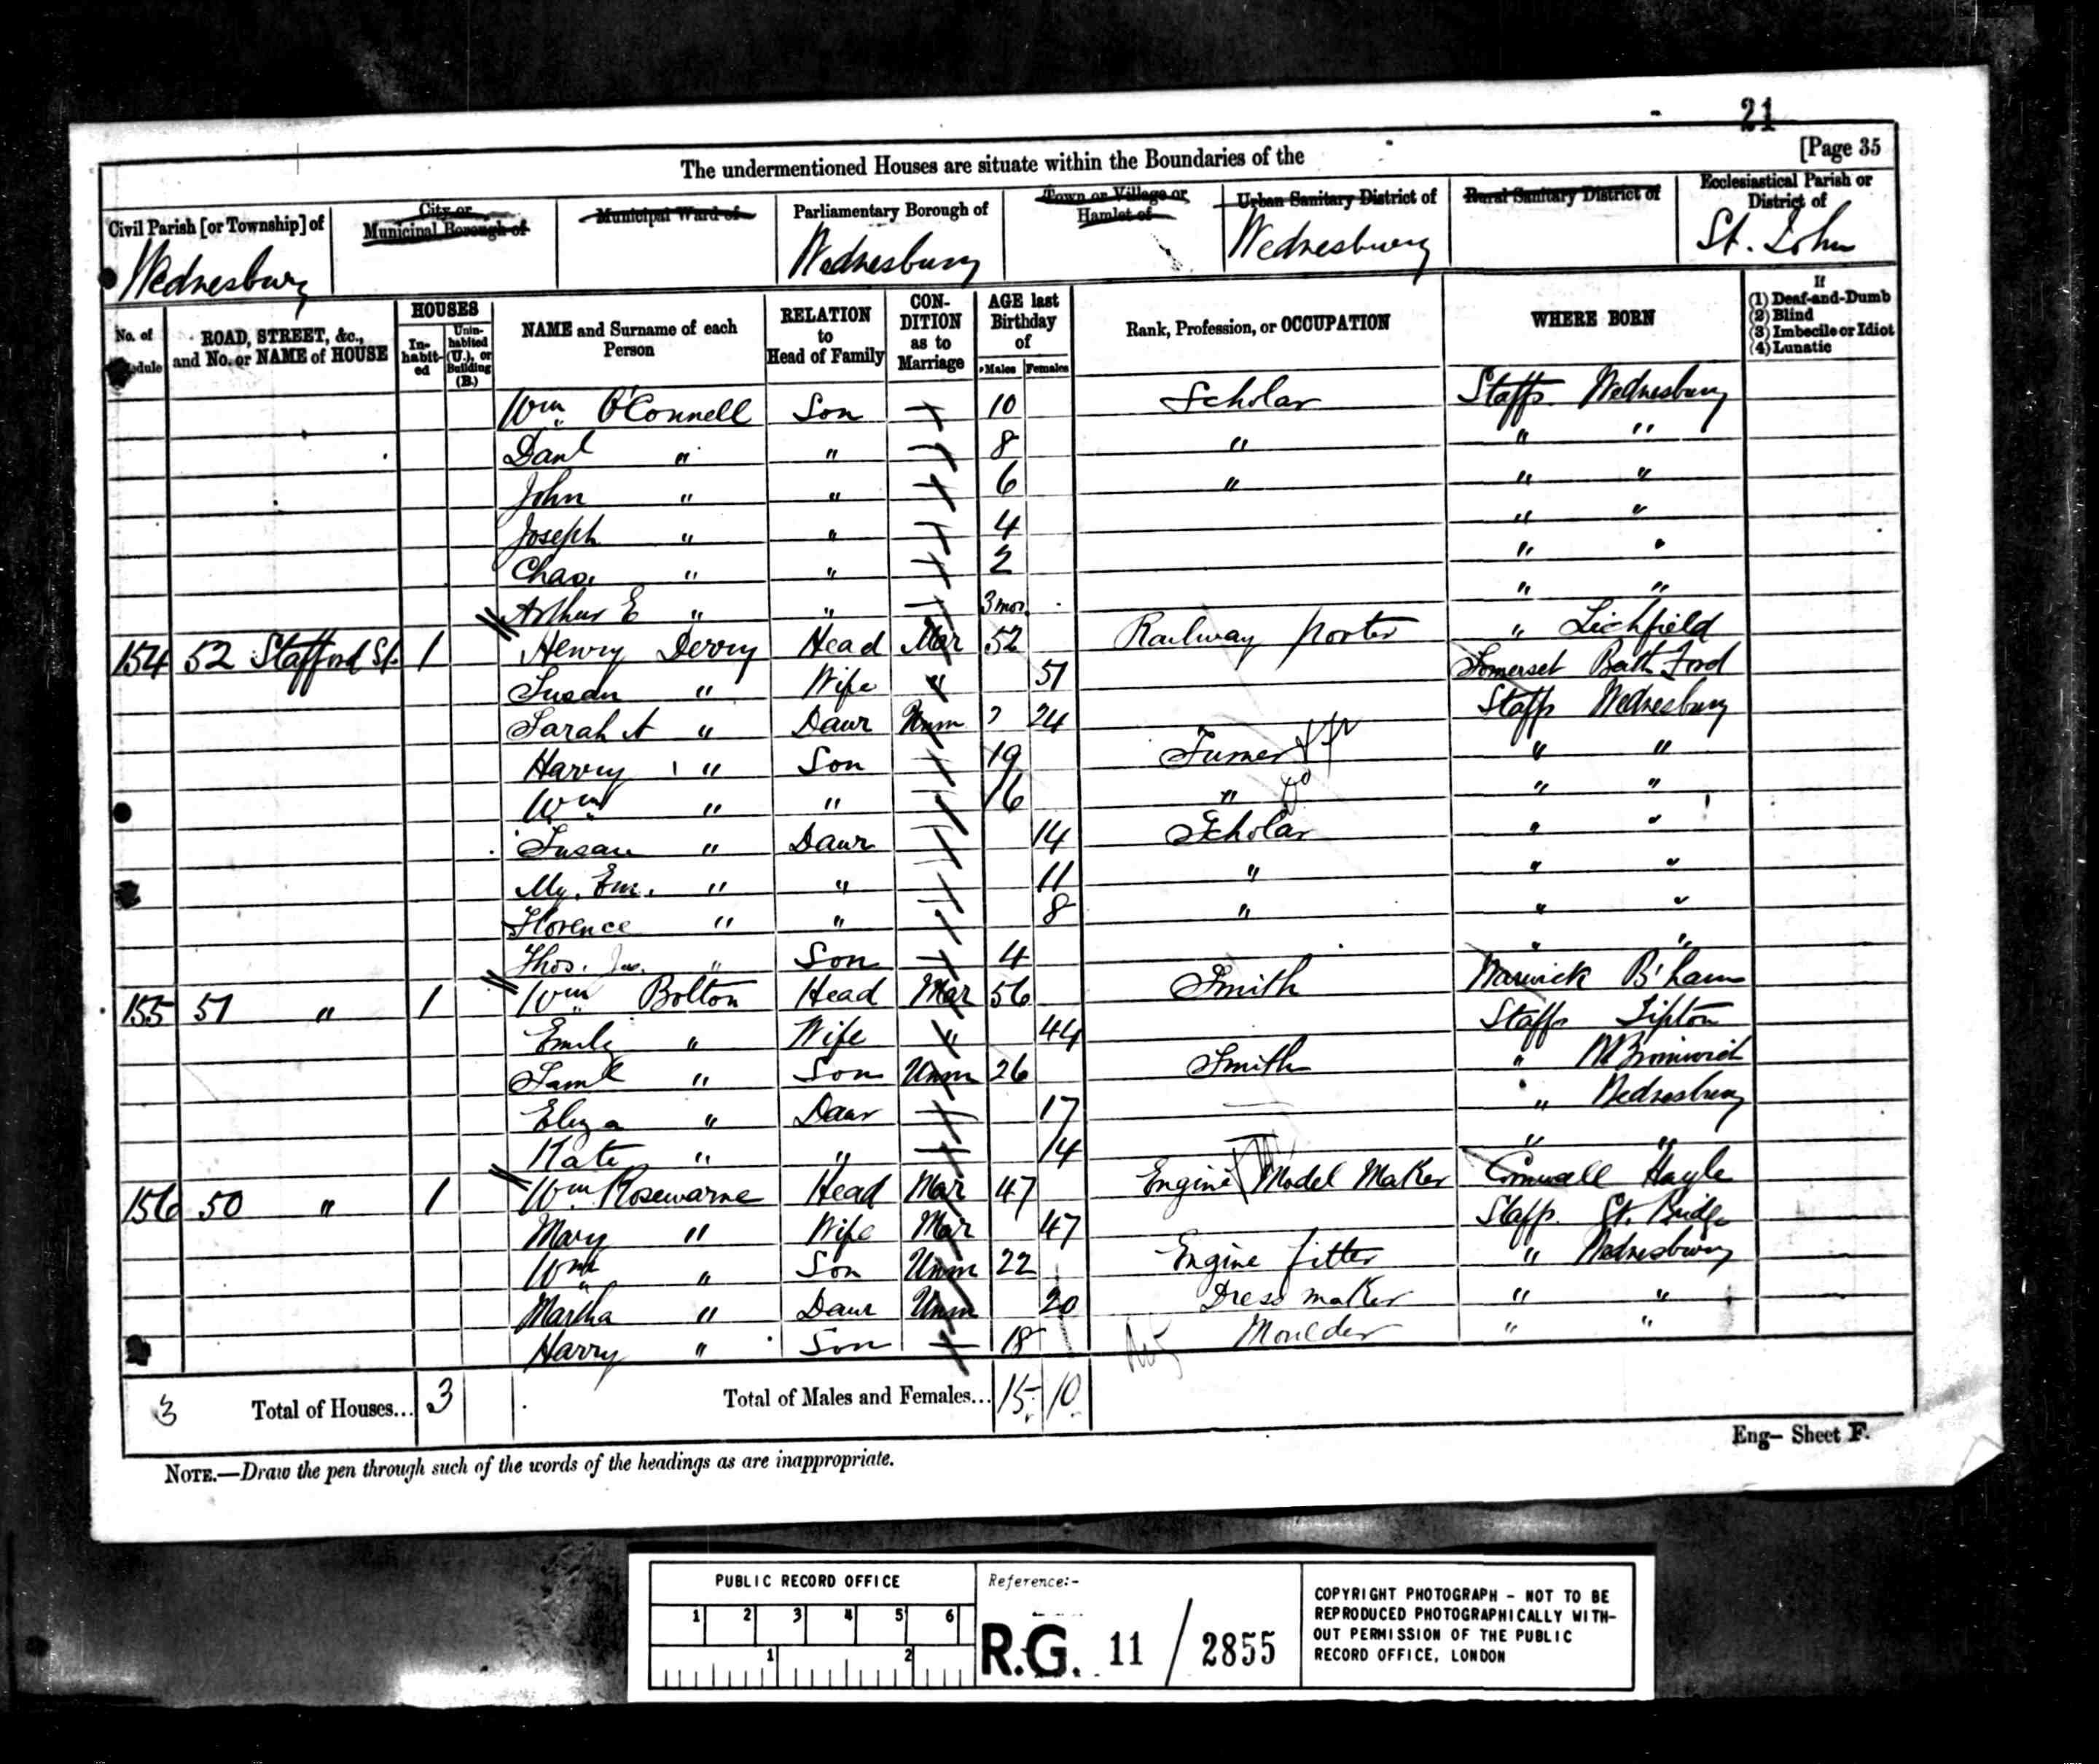 21
The undermentioned Houses are situate within the Boundaries of the [Page 35
Civil Parish [or Township] of City or Municipal Borough of Municipal Ward of Parliamentary Borough of Town or Village or Hamlet of Urban Sanitary District of Rural Sanitary District of Ecclesiastical Parish or District of
Wednesbury Wednesbury Wednesbury St. John
No. of Schedule ROAD, STREET, &c., and No. or NAME of HOUSE HOUSES In-habit-ed Unin-habited (U.), or Building (B.) NAME and Surname of each Person RELATION to Head of Family CON-DITION as to Marriage AGE last Birthday of Males Females Rank, Profession, or OCCUPATION WHERE BORN If (1) Deaf-and-Dumb (2) Blind (3) Imbecile or Idiot (4) Lunatic
Wm O'Connell Son 10 Scholar Staffs Wednesbury
Danl " " 8 " " "
John " " 6 " " "
Joseph " " 4 " "
Chas. " " 2 " "
Arthur E " " 3 mos " "
154 52 Stafford St. 1 Henry Derry Head Mar 52 Railway Porter " Lichfield
Susan " Wife " 51 Somerset Bath Ford
Sarah A " Daur Unm 24 Staffs Wednesbury
Harry " Son 19 Turner " "
Wm " " 16 " " "
Susan " Daur 14 Scholar " "
My. Em. " " 11 " " "
Florence " " 8 " " "
Thos. Jas. " Son 4 " "
155 51 " 1 Wm Bolton Head Mar 56 Smith Warwick B'ham
Emily " Wife " 44 Staffs Tipton
Saml " Son Unm 26 Smith " W Bromwich
Eliza " Daur 17 " Wednesbury
Kate " " 14 " "
156 50 " 1 Wm Rosewarne Head Mar 47 Engine Model Maker Cornwall Hayle
Mary " Wife Mar 47 Staffs. Gt. Bridge
Wm " Son Unm 22 Engine fitter " Wednesbury
Martha " Daur Unm 20 Dress maker " "
Harry " Son 18 Moulder " "
3 Total of Houses... 3 Total of Males and Females... 15 10
Eng— Sheet F.
NOTE.—Draw the pen through such of the words of the headings as are inappropriate.
PUBLIC RECORD OFFICE
1 2 3 4 5 6
1 2
Reference:-
R.G. 11 / 2855
COPYRIGHT PHOTOGRAPH - NOT TO BE
REPRODUCED PHOTOGRAPHICALLY WITH-
OUT PERMISSION OF THE PUBLIC
RECORD OFFICE, LONDON